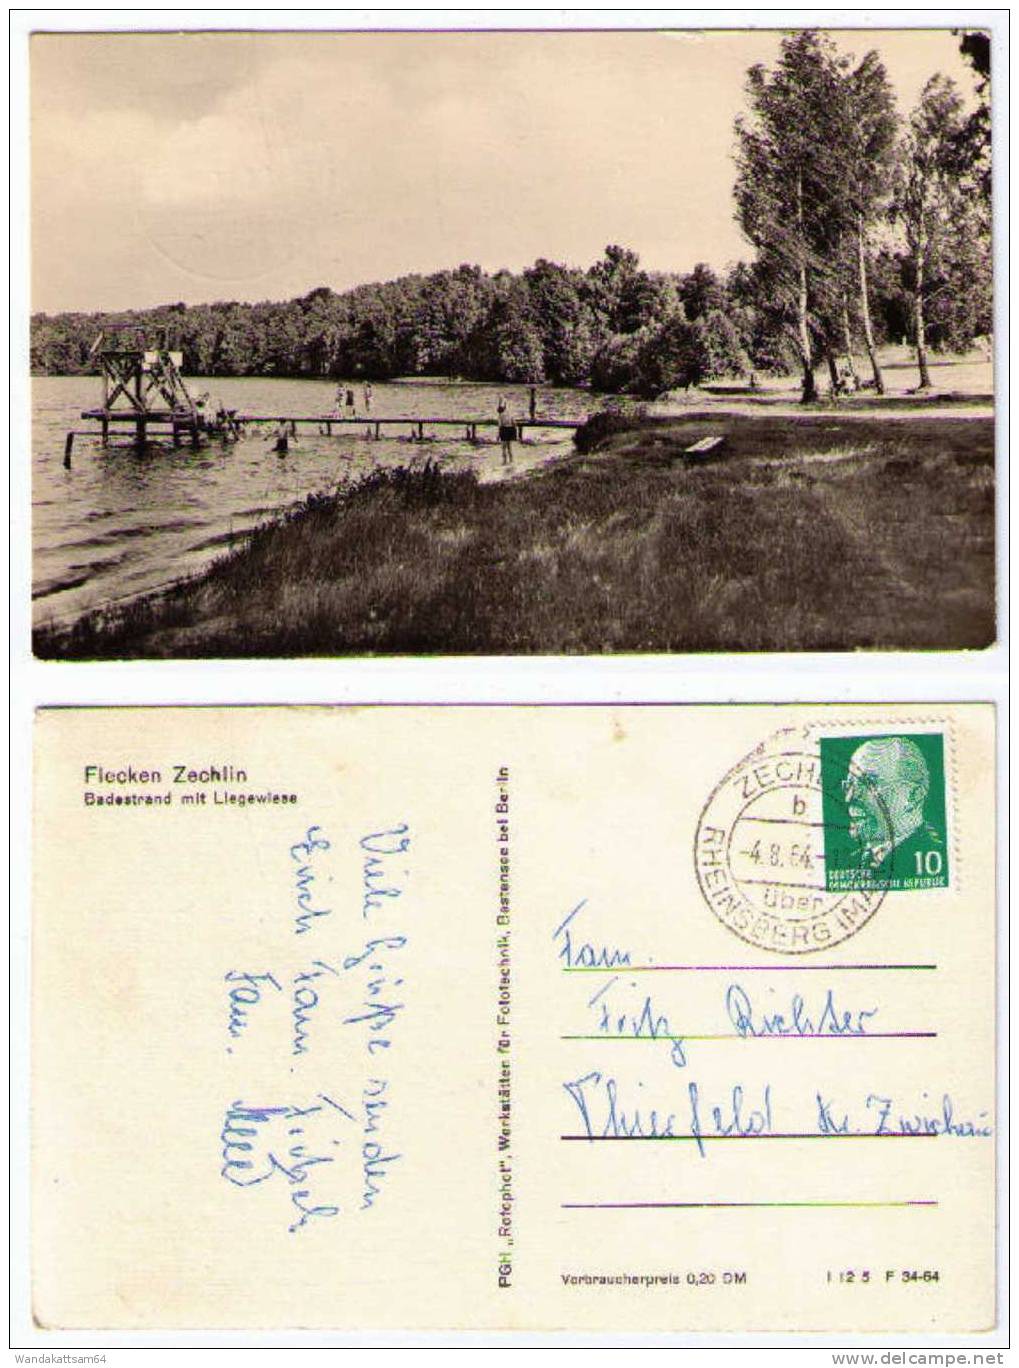 Flecken Zechlin
Badestrand mit Liegewiese
Viele Grüße senden
Erich Fam.
Fam.
PGH „Rotophot", Werkstätten für Fototechnik, Bestensee bei Berlin
ZECHLIN
b
-4.8.64.-
über
RHEINSBERG (MARK
10
DEUTSCHE
DEMOKRATISCHE REPUBLIK
Fam.
Fritz Richter
Thierfeld Kr. Zwickau
Verbraucherpreis 0,20 DM
I 12 5 F 34-64
Wandakattsam64
delcampe.net